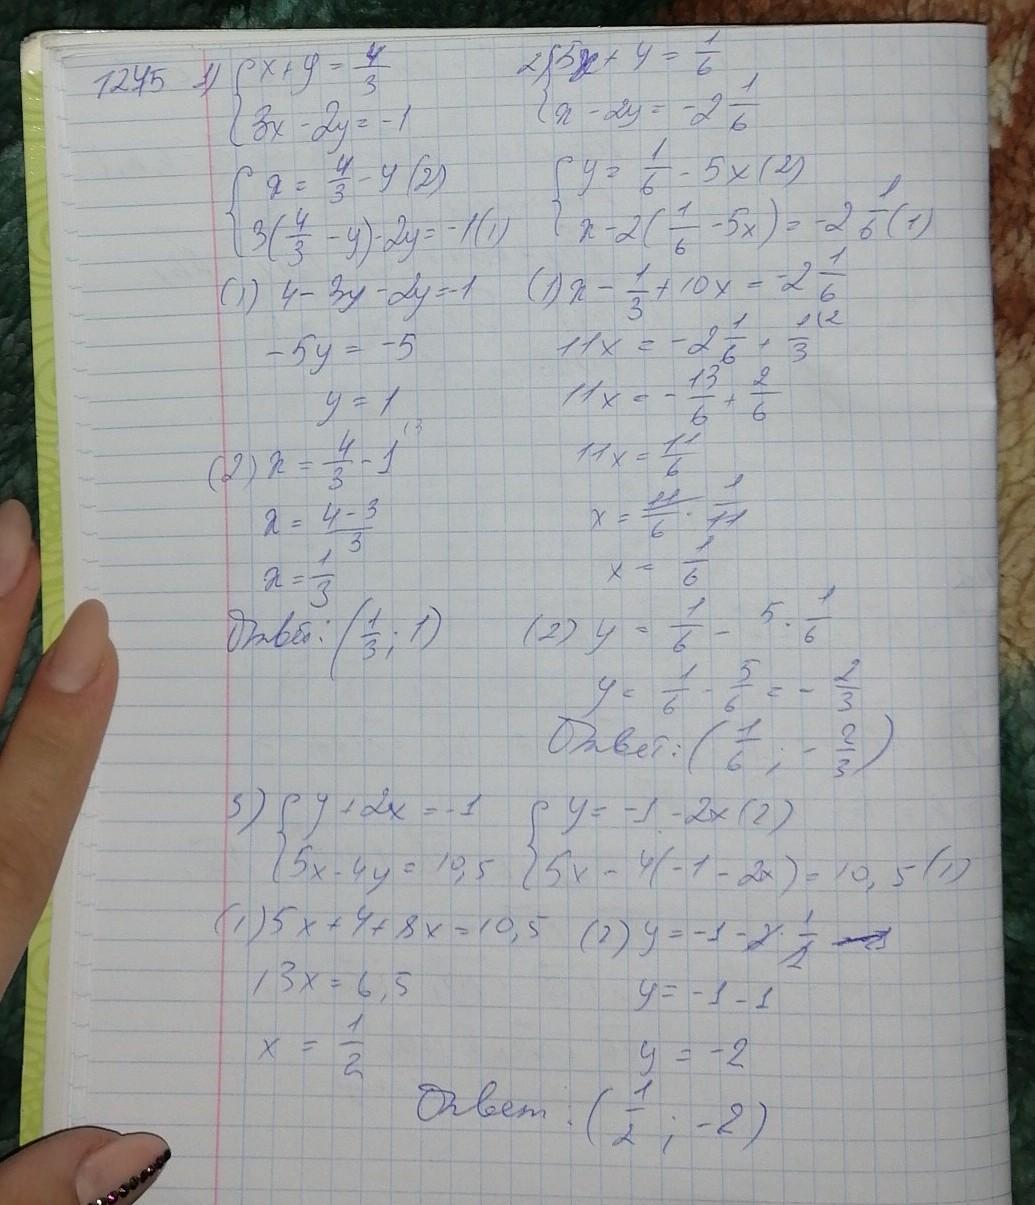 1245 1) { x + y = 4/3
3x - 2y = -1
{ x = 4/3 - y (2)
3(4/3 - y) - 2y = -1 (1)
(1) 4 - 3y - 2y = -1
-5y = -5
y = 1
(2) x = 4/3 - 1 (3
x = (4 - 3)/3
x = 1/3
Ответ: (1/3 ; 1)
2) { 5x + y = 1/6
x - 2y = -2 1/6
{ y = 1/6 - 5x (2)
x - 2(1/6 - 5x) = -2 1/6 (1)
(1) x - 1/3 + 10x = -2 1/6
11x = -2 1/6 + 1/3 (2
11x = -13/6 + 2/6
11x = 11/6
x = 11/6 · 1/11
x = 1/6
(2) y = 1/6 - 5 · 1/6
y = 1/6 - 5/6 = - 2/3
Ответ: (1/6 ; - 2/3)
3) { y + 2x = -1
5x - 4y = 10,5
{ y = -1 - 2x (2)
5x - 4(-1 - 2x) = 10,5 (1)
(1) 5x + 4 + 8x = 10,5
13x = 6,5
x = 1/2
(2) y = -1 - 2 · 1/2
y = -1 - 1
y = -2
Ответ: (1/2 ; -2)